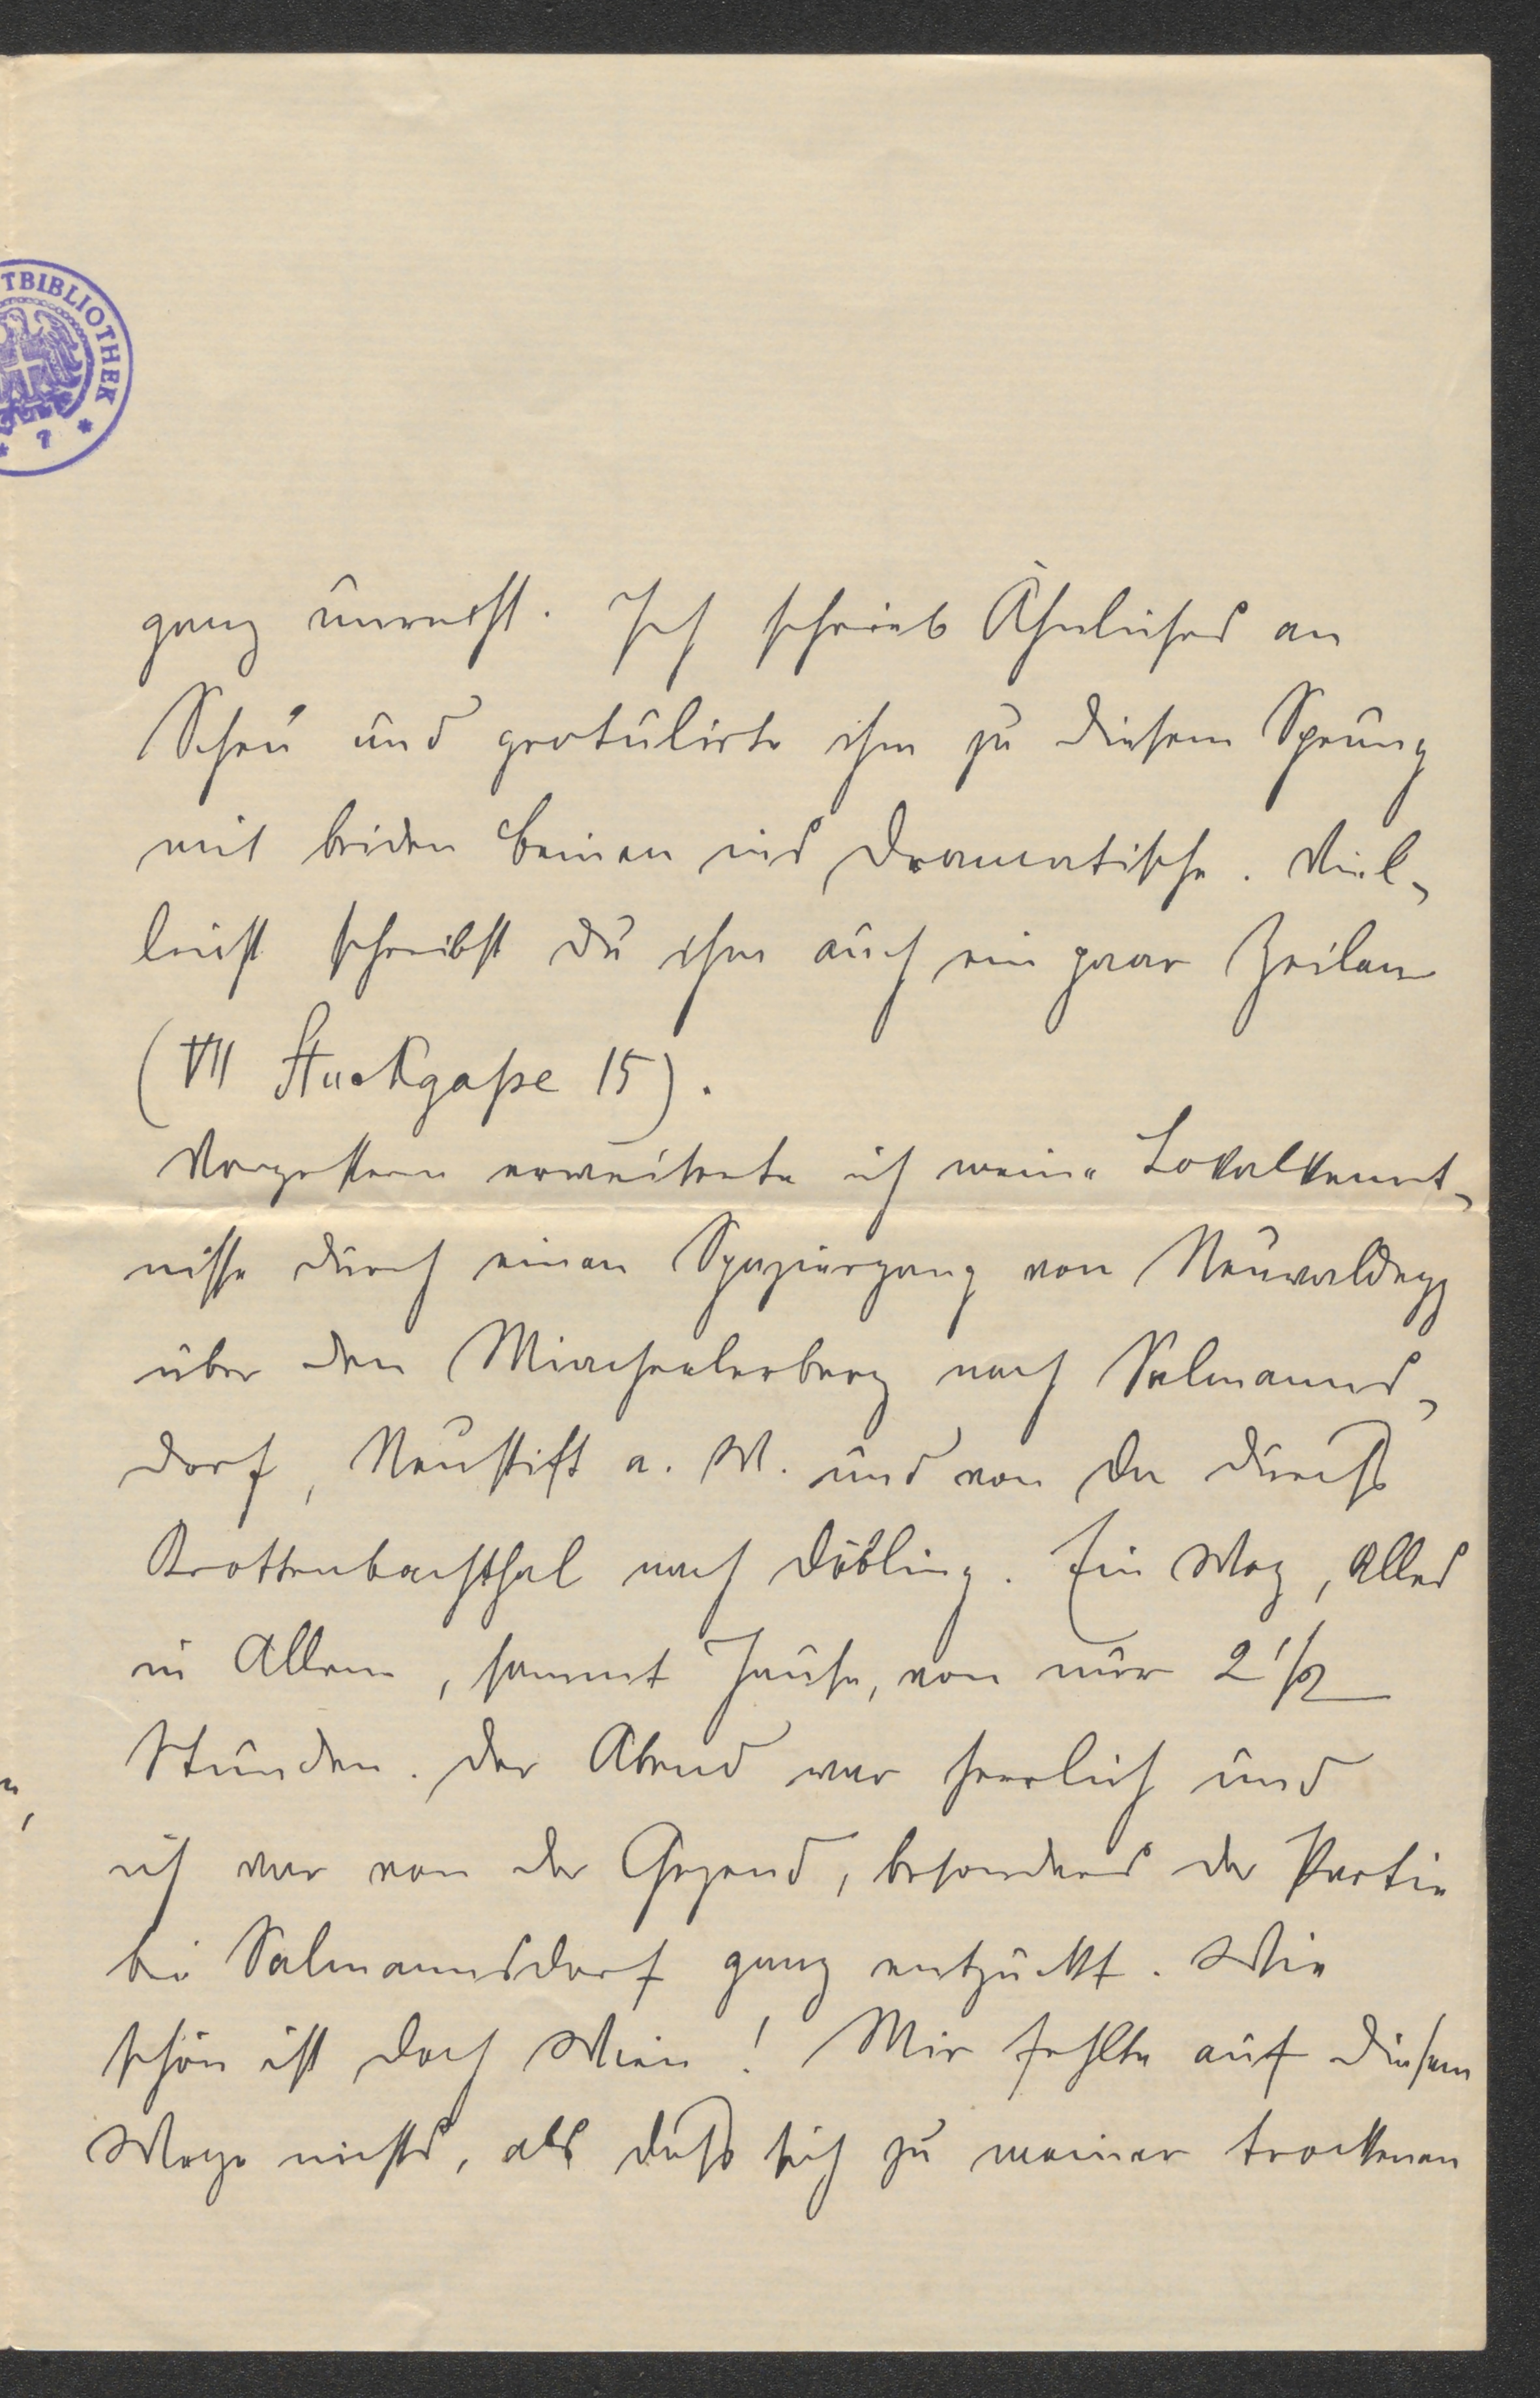 TBIBLIOTHEK
* 7 *
ganz unrecht. Ich schrieb Ähnliches an
Scheu und gratulirte ihm zu diesem Sprung
mit beiden Beinen ins Dramatische. Viel-
leicht schreibst Du ihm auch ein paar Zeilen
(VII Stuckgasse 15).
Vorgestern erweiterte ich meine Lokalkennt-
nisse durch einen Spaziergang von Neuwaldegg
über den Michaelerberg nach Salmanns-
dorf, Neustift a. W. und von da durchs
Krottenbachthal nach Döbling. Ein Weg, Alles
in Allem, sammt Jause, von nur 2 1/2
Stunden. Der Abend war herrlich und
ich war von der Gegend, besonders der Partie
bei Salmannsdorf ganz entzückt. Wie
schön ist doch Wien! Mir fehlte auf diesem
Wege nichts, als daß sich zu meiner trockenen